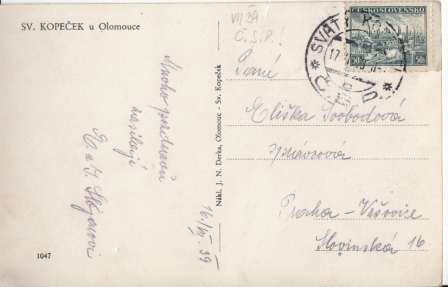 SV. KOPEČEK u Olomouce
VII/39
Č.S.P.!
ČESKOSLOVENSKO
50h 50h
SVATÝ KOP
17
Mnoho pozdravů
zasílají
16/VII. 39
Nákl. J. N. Derka, Olomouc - Sv. Kopeček
Paní
Eliška Svobodová
správcová
Praha - Vršovice
Slovinská 16
1047